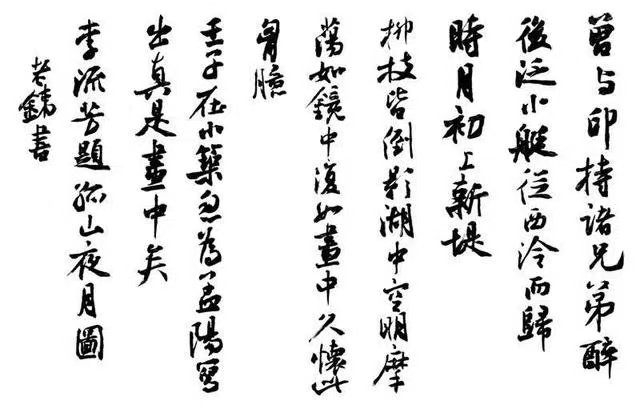 曾与印持諸兄弟醉
後泛小艇從西泠而歸
時月初上新堤
柳枝皆倒影湖中空明摩
蕩如鏡中復如畫中久懷此
胷臆
壬子在小築忽為孟陽寫
出真是畫中矣
李流芳題孤山夜月圖
書